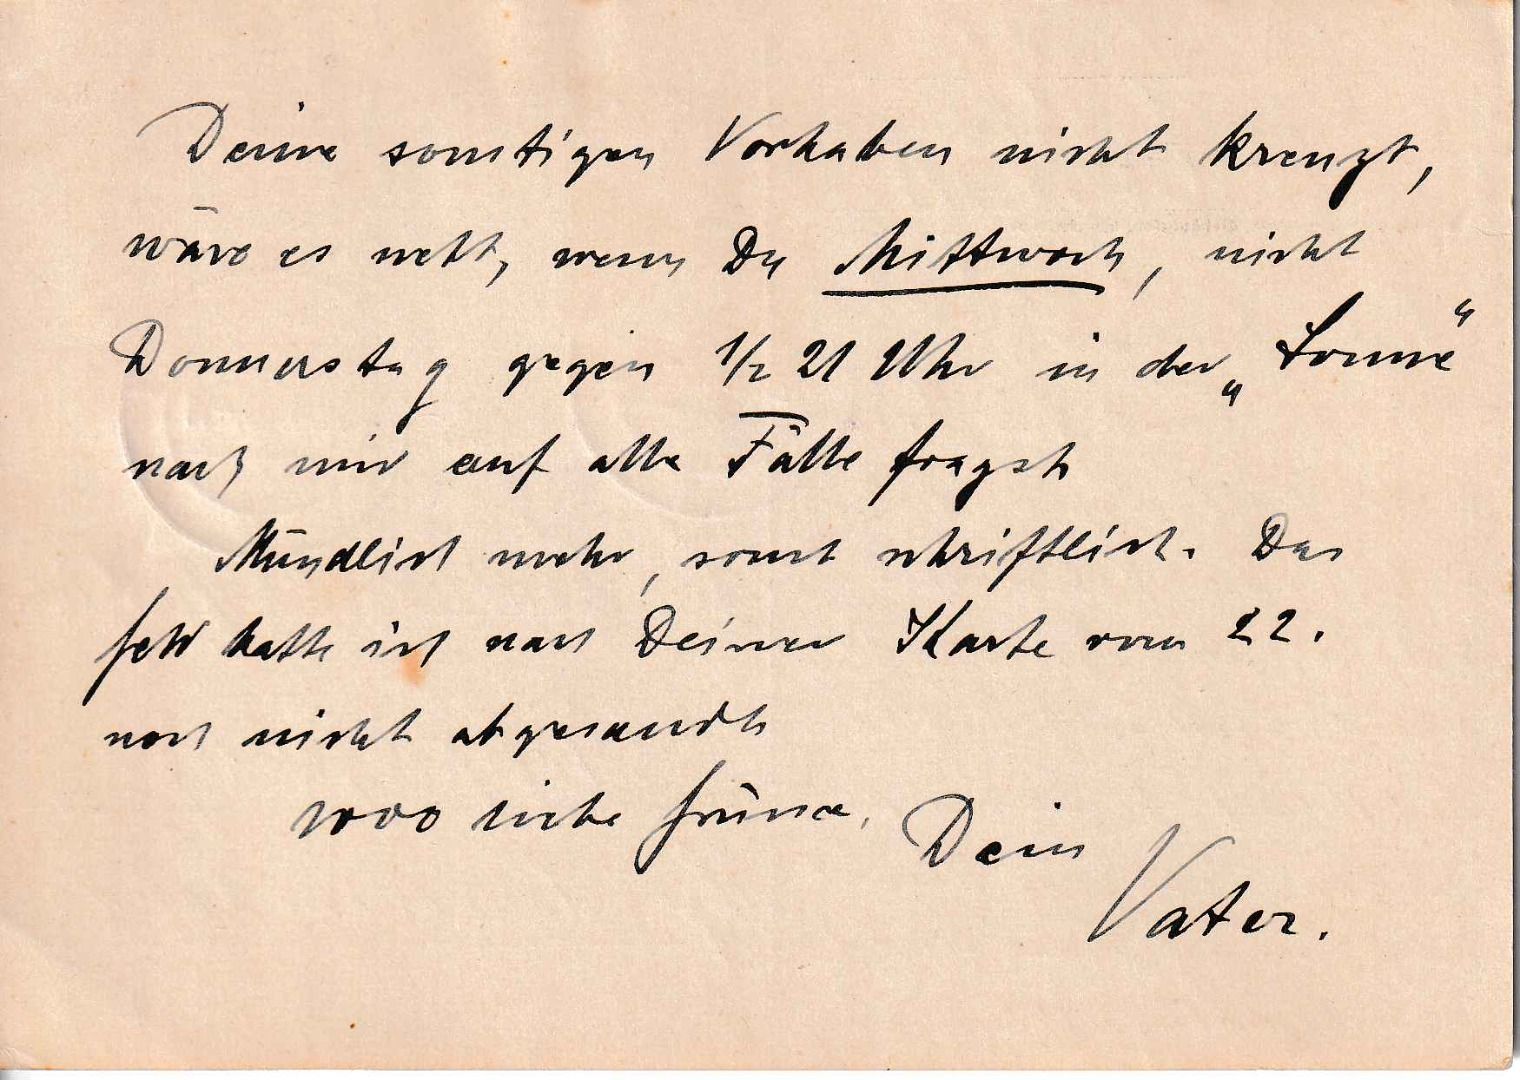 Deine sonstigen Vorhaben nicht kreuzt,
wäre es nett, wenn Du Mittwoch, nicht
Donnerstag gegen 1/2 21 Uhr in der „Sonne“
nach mir auf alle Fälle fragst
Mündlich mehr, sonst schriftlich. Das
Geld hatte ich nach Deiner Karte vom 22.
noch nicht abgesandt
1000 liebe Grüsse, Dein
Vater.